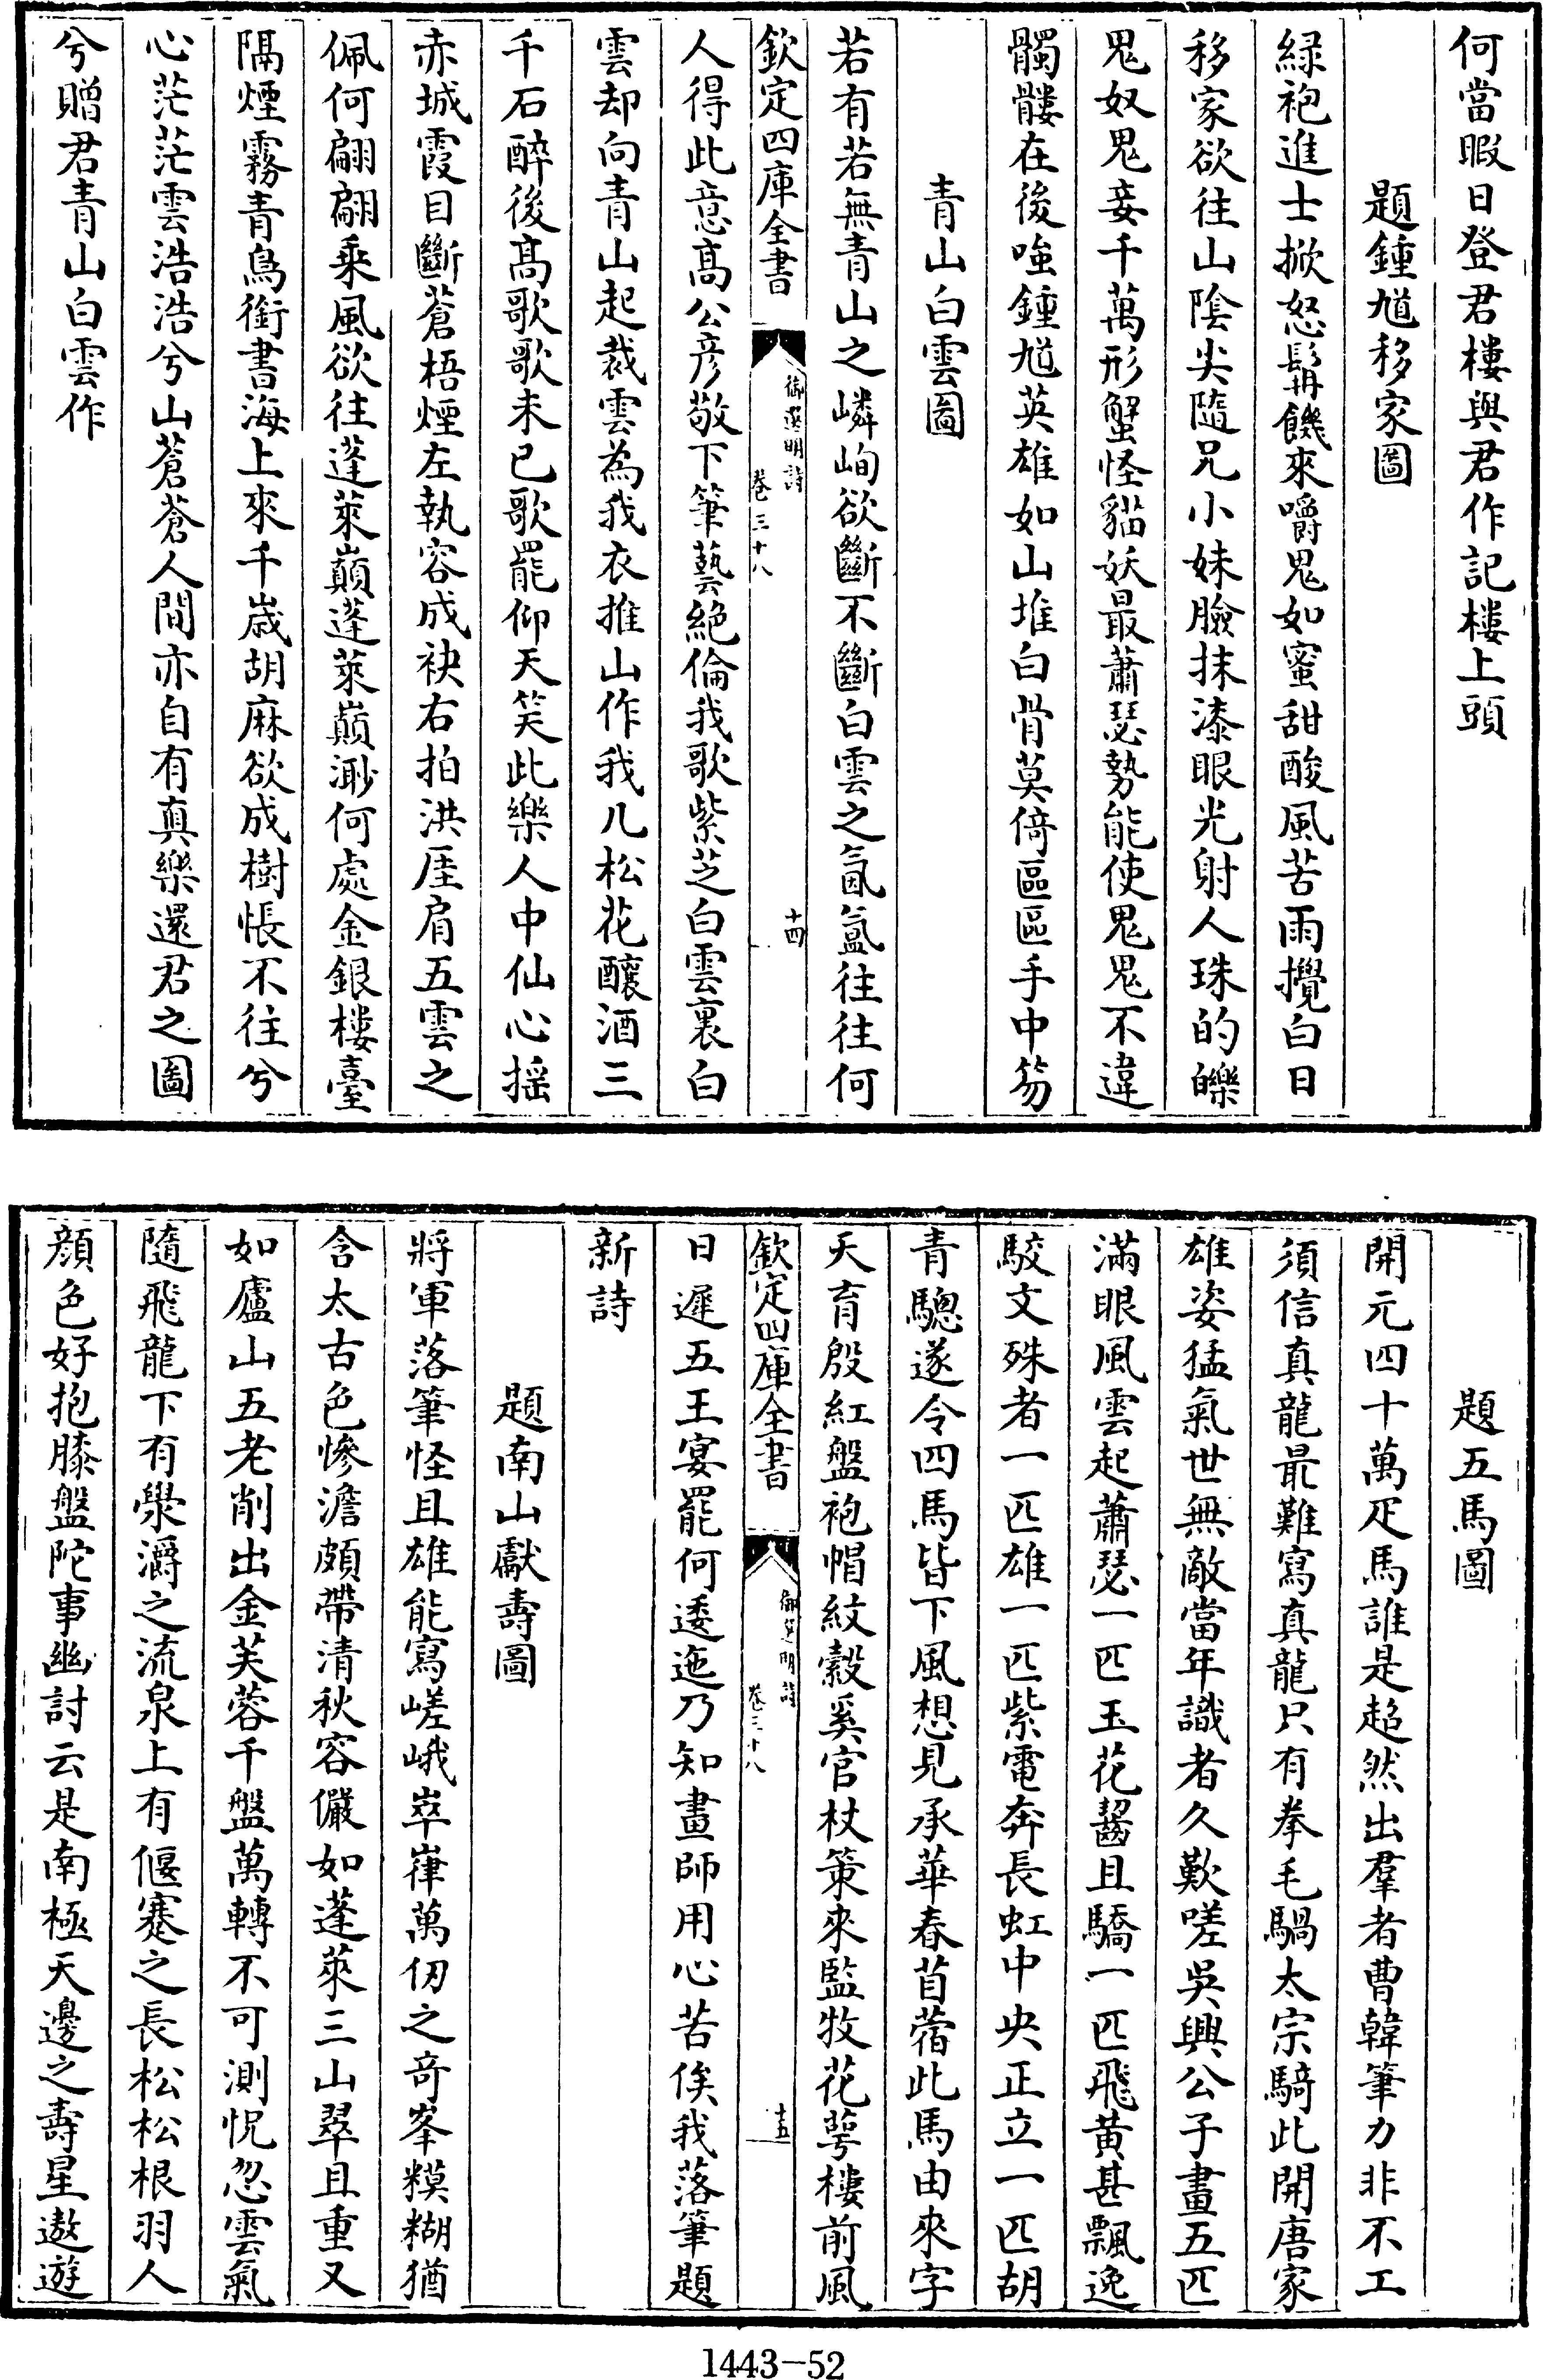 何當暇日登君樓與君作記樓上頭
題鍾馗移家圖
緑袍進士掀怒髯饑來嚼鬼如蜜甜酸風苦雨攪白日
移家欲往山陰尖隨兄小妹臉抹漆眼光射人珠的皪
鬼奴鬼妾千萬形蟹怪貓妖最蕭瑟勢能使鬼鬼不違
髑髏在後嗤鍾馗英雄如山堆白骨莫倚區區手中笏
青山白雲圖
若有若無青山之嶙峋欲斷不斷白雲之氤氳往往何
欽定四庫全書
御選明詩
卷三十八
十四
人得此意髙公彦敬下筆藝絶倫我歌紫芝白雲裏白
雲却向青山起裁雲為我衣推山作我几松花釀酒三
千石醉後髙歌歌未已歌罷仰天笑此樂人中仙心摇
赤城霞目斷蒼梧煙左執容成袂右拍洪厓肩五雲之
佩何翩翩乘風欲往蓬萊巔蓬萊巔渺何處金銀樓臺
隔煙霧青鳥銜書海上來千歳胡麻欲成樹悵不往兮
心茫茫雲浩浩兮山蒼蒼人間亦自有真樂還君之圖
兮贈君青山白雲作
題五馬圖
開元四十萬疋馬誰是超然出羣者曹韓筆力非不工
須信真龍最難寫真龍只有拳毛騧太宗騎此開唐家
雄姿猛氣世無敵當年識者久歎嗟吳興公子畫五匹
滿眼風雲起蕭瑟一匹玉花齧且驕一匹飛黄甚飄逸
駮文殊者一匹雄一匹紫電奔長虹中央正立一匹胡
青驄遂令四馬皆下風想見承華春苜蓿此馬由來字
天育殷紅盤袍帽紋縠奚官杖策來監牧花萼樓前風
欽定四庫全書
御選明詩
卷三十八
十五
日遲五王宴罷何逶迤乃知畫師用心苦俟我落筆題
新詩
題南山獻壽圖
將軍落筆怪且雄能寫嵯峨崒嵂萬仞之竒峯糢糊猶
含太古色慘澹頗帶清秋容儼如蓬萊三山翠且重又
如廬山五老削出金芙蓉千盤萬轉不可測怳忽雲氣
隨飛龍下有灂之流泉上有偃蹇之長松松根羽人
顔色好抱膝盤陀事幽討云是南極天邊之壽星遨遊
1443-52